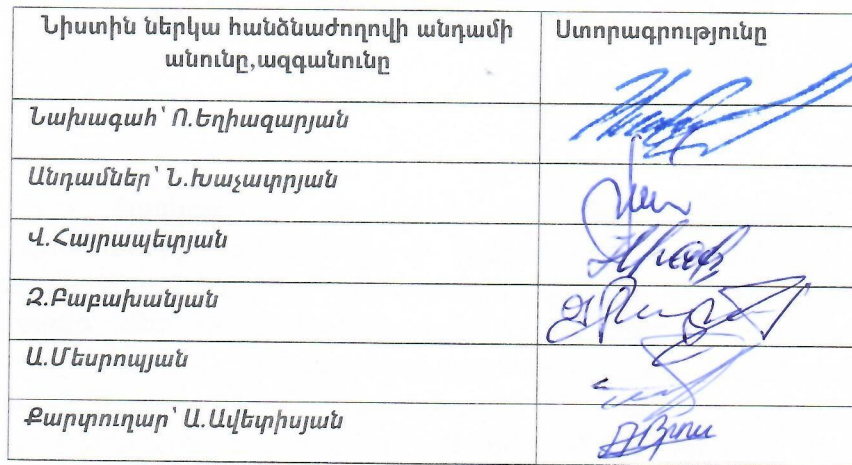 Նիստին ներկա հանձնաժողովի անդամի
անունը,ազգանունը
Ստորագրությունը
Նախագահ՝ Ո.Եղիազարյան
Անդամներ՝ Ն.Խաչատրյան
Վ.Հայրապետյան
Զ.Բաբախանյան
Ա.Մեսրոպյան
Քարտուղար՝ Ա.Ավետիսյան